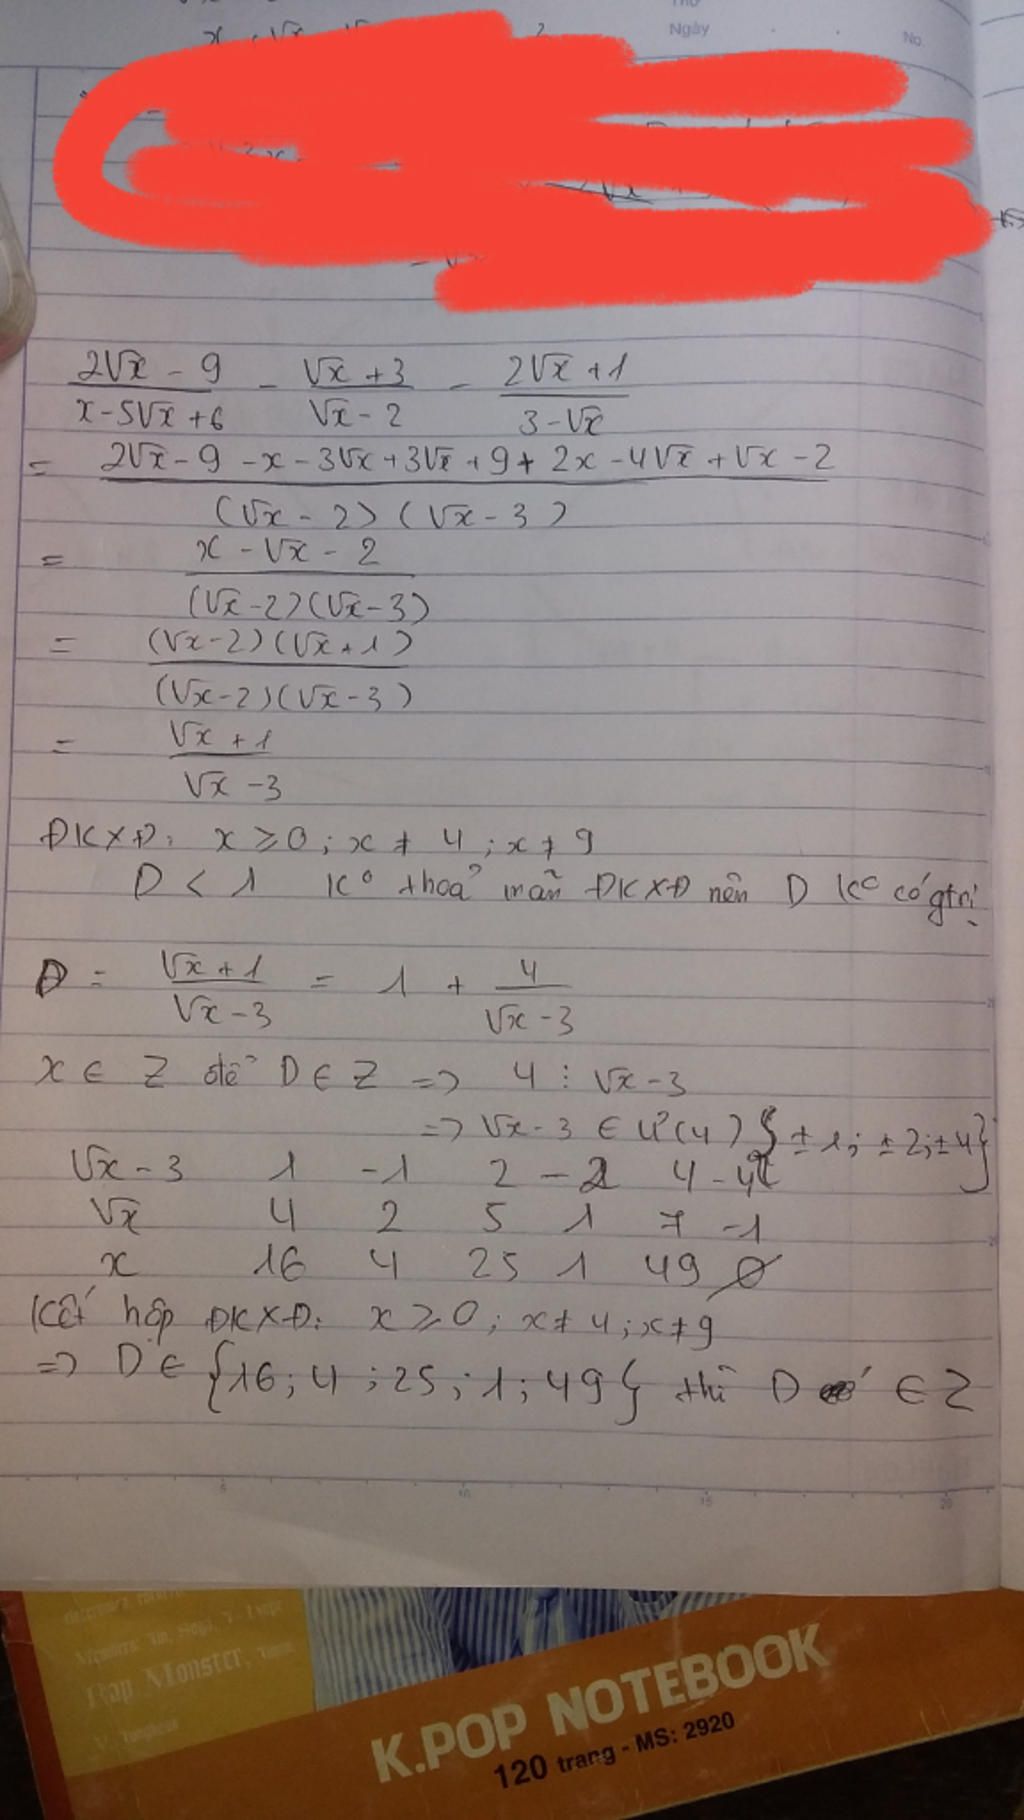 Thứ
Ngày
No.
2√x - 9 / x - 5√x + 6 - √x + 3 / √x - 2 - 2√x + 1 / 3 - √x
= 2√x - 9 - x - 3√x + 3√x + 9 + 2x - 4√x + √x - 2 / (√x - 2)(√x - 3)
= x - √x - 2 / (√x - 2)(√x - 3)
= (√x - 2)(√x + 1) / (√x - 2)(√x - 3)
= √x + 1 / √x - 3
ĐKXĐ: x ≥ 0; x ≠ 4; x ≠ 9
D < 1 K° thoả mãn ĐKXĐ nên D K° có gtrị
D = √x + 1 / √x - 3 = 1 + 4 / √x - 3
x ∈ Z để D ∈ Z => 4 ⋮ √x - 3
=> √x - 3 ∈ Ư(4) {±1; ±2; ±4}
√x - 3 1 -1 2 -2 4 -4
√x 4 2 5 1 7 -1
x 16 4 25 1 49 ∅
Kết hợp ĐKXĐ: x ≥ 0; x ≠ 4; x ≠ 9
=> D ∈ {16; 4; 25; 1; 49} thì D ∈ Z
5 10 15 20
Rap Monster,
K.POP NOTEBOOK
120 trang - MS: 2920